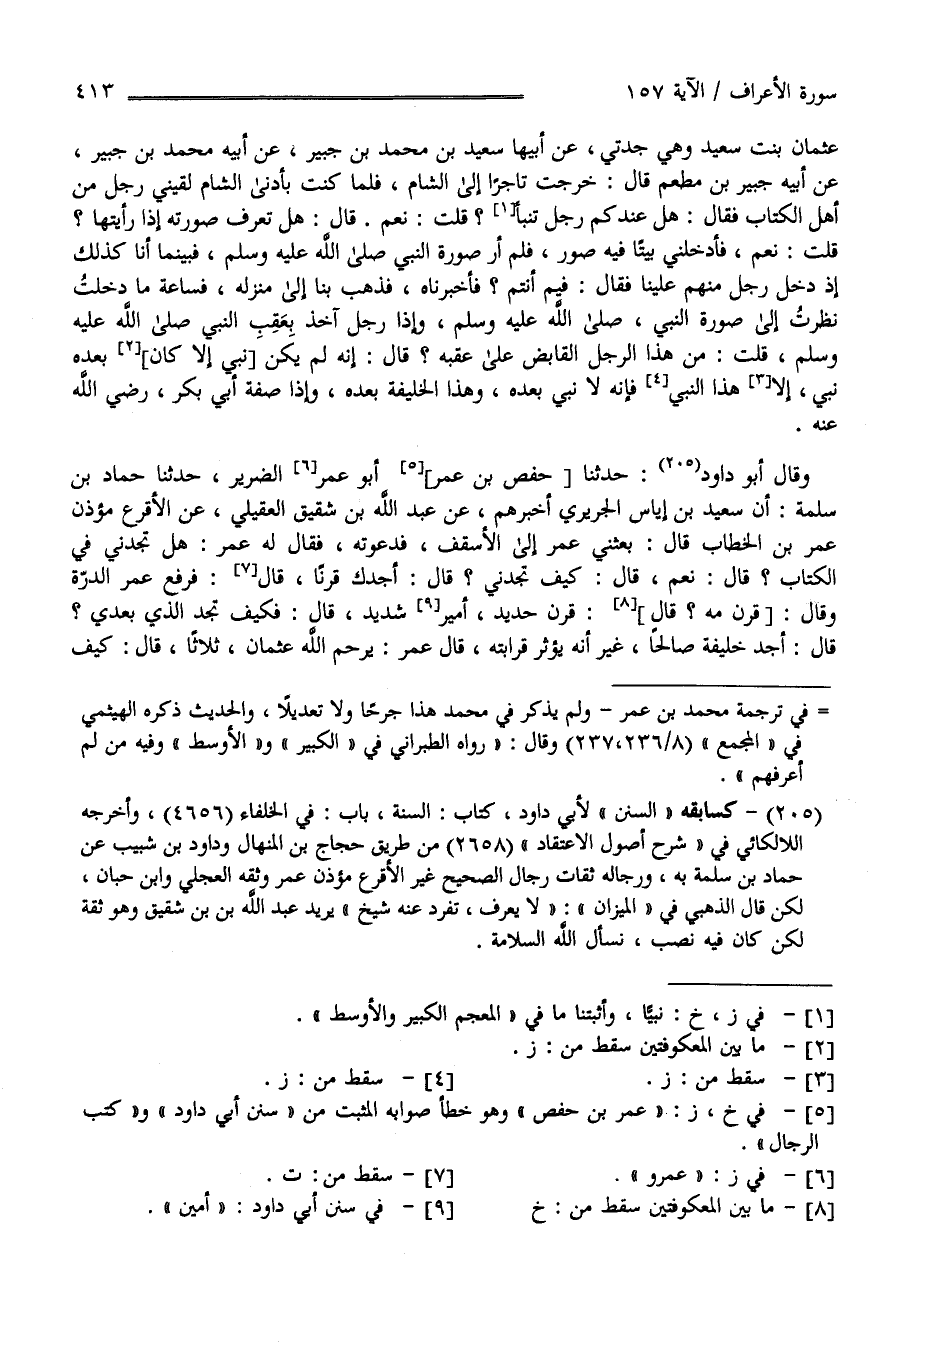 سورة الأعراف / الآية ١٥٧ ٤١٣
عثمان بنت سعيد وهي جدتي ، عن أبيها سعيد بن محمد بن جبير ، عن أبيه محمد بن جبير ،
عن أبيه جبير بن مطعم قال : خرجت تاجرًا إلىٰ الشام ، فلما كنت بأدنىٰ الشام لقيني رجل من
أهل الكتاب فقال : هل عندكم رجل تنبأ[١] ؟ قلت : نعم . قال : هل تعرف صورته إذا رأيتها ؟
قلت : نعم ، فأدخلني بيتًا فيه صور ، فلم أر صورة النبي صلىٰ اللَّه عليه وسلم ، فبينما أنا كذلك
إذ دخل رجل منهم علينا فقال : فيم أنتم ؟ فأخبرناه ، فذهب بنا إلىٰ منزله ، فساعة ما دخلتُ
نظرتُ إلىٰ صورة النبي ، صلىٰ اللَّه عليه وسلم ، وإذا رجل آخذ بِعَقِبِ النبي صلىٰ اللَّه عليه
وسلم ، قلت : من هذا الرجل القابض علىٰ عقبه ؟ قال : إنه لم يكن [نبي إلا كان][٢] بعده
نبي ، إلا[٣] هذا النبي[٤] فإنه لا نبي بعده ، وهذا الخليفة بعده ، وإذا صفة أبي بكر ، رضي اللَّه
عنه .
وقال أبو داود(٢٠٥) : حدثنا [ حفص بن عمر][٥] أبو عمر[٦] الضرير ، حدثنا حماد بن
سلمة : أن سعيد بن إياس الجريري أخبرهم ، عن عبد اللَّه بن شقيق العقيلي ، عن الأقرع مؤذن
عمر بن الخطاب قال : بعثني عمر إلىٰ الأسقف ، فدعوته ، فقال له عمر : هل تجدني في
الكتاب ؟ قال : نعم ، قال : كيف تجدني ؟ قال : أجدك قرنًا ، قال[٧] : فرفع عمر الدرّة
وقال : [ قرن مه ؟ قال ][٨] : قرن حديد ، أمير[٩] شديد ، قال : فكيف تجد الذي بعدي ؟
قال : أجد خليفة صالحًا ، غير أنه يؤثر قرابته ، قال عمر : يرحم اللَّه عثمان ، ثلاثًا ، قال : كيف
= في ترجمة محمد بن عمر - ولم يذكر في محمد هذا جرحًا ولا تعديلًا ، والحديث ذكره الهيثمي
في « المجمع » (٢٣٧،٢٣٦/٨) وقال : « رواه الطبراني في « الكبير » و« الأوسط » وفيه من لم
أعرفهم » .
(٢٠٥) - كسابقه « السنن » لأبي داود ، كتاب : السنة ، باب : في الخلفاء (٤٦٥٦) ، وأخرجه
اللالكائي في « شرح أصول الاعتقاد » (٢٦٥٨) من طريق حجاج بن المنهال وداود بن شبيب عن
حماد بن سلمة به ، ورجاله ثقات رجال الصحيح غير الأقرع مؤذن عمر وثقه العجلي وابن حبان ،
لكن قال الذهبي في « الميزان » : « لا يعرف ، تفرد عنه شيخ » يريد عبد اللَّه بن بن شقيق وهو ثقة
لكن كان فيه نصب ، نسأل اللَّه السلامة .
[١] - في ز ، خ : نبيًّا ، وأثبتنا ما في « المعجم الكبير والأوسط » .
[٢] - ما بين المعكوفتين سقط من : ز .
[٣] - سقط من : ز . [٤] - سقط من : ز .
[٥] - في خ ، ز : « عمر بن حفص » وهو خطأ صوابه المثبت من « سنن أبي داود » و« كتب
الرجال» .
[٦] - في ز : « عمرو » . [٧] - سقط من : ت .
[٨] - ما بين المعكوفتين سقط من : خ [٩] - في سنن أبي داود : « أمين » .